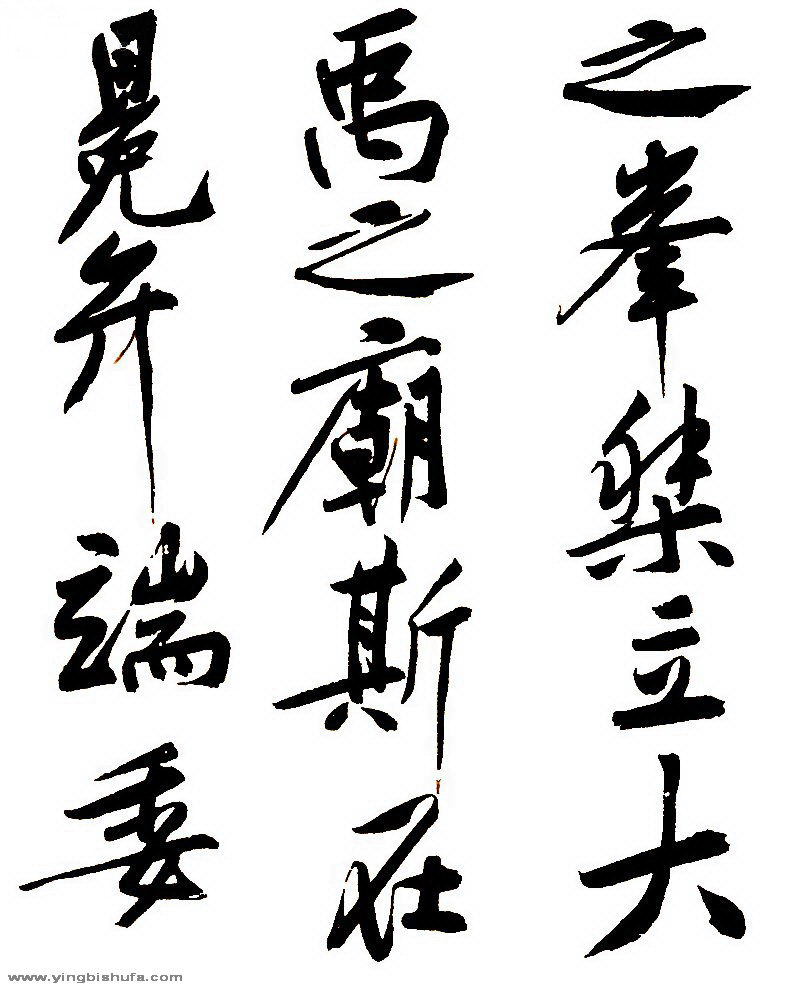 之峯桀立大
禹之廟斯在
冕弁端委
www.yingbishufa.com